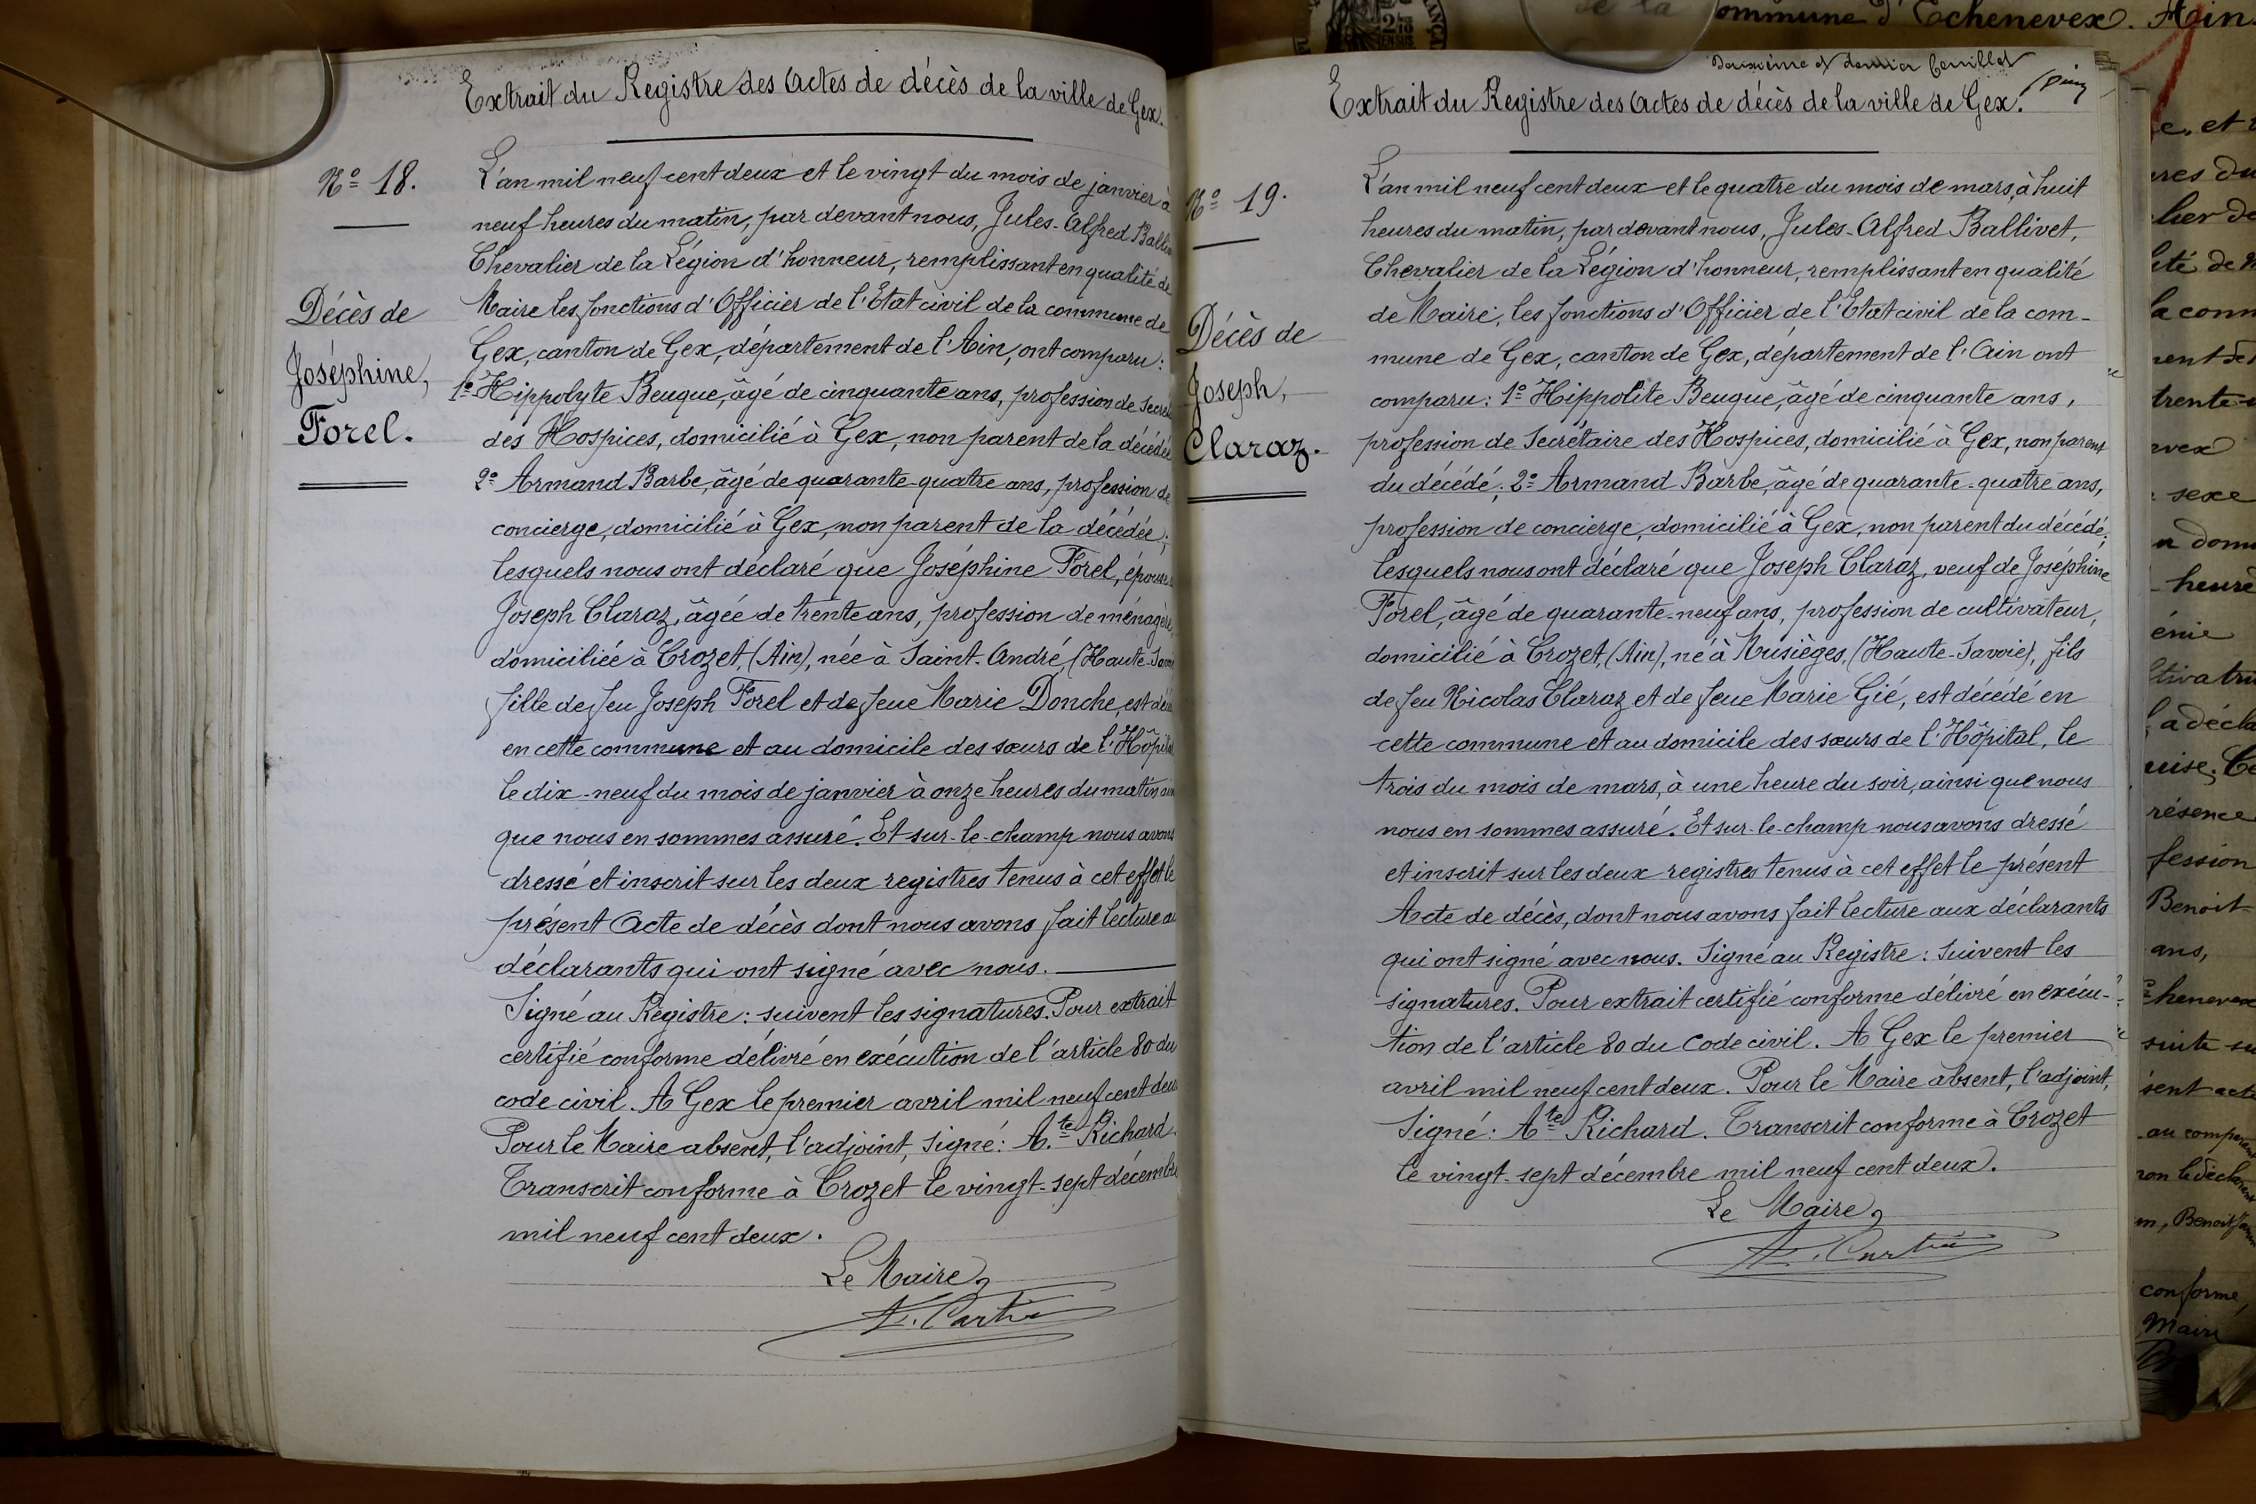 Extrait du Registre des Actes de décès de la ville de Gex.
Nº 18.
Décès de
Joséphine,
Forel.
L'an mil neuf cent deux et le vingt du mois de janvier à
neuf heures du matin, par devant nous, Jules-Alfred
Chevalier de la Légion d'honneur, remplissant en qualité de
Maire les fonctions d'Officier de l'Etat civil de la commune de
Gex, canton de Gex, département de l'Ain, ont comparu:
1º Hippolyte Beuque, âgé de cinquante ans, profession de
des Hospices, domicilié à Gex, non parent de la décédée
2º Armand Barbe, âgé de quarante-quatre ans, profession de
concierge, domicilié à Gex, non parent de la décédée;
lesquels nous ont déclaré que Joséphine Forel, épouse
Joseph Claraz, âgée de trente ans, profession de ménagère,
domiciliée à Crozet, (Ain), née à Saint-André, (Haute-
fille de feu Joseph Forel et de feue Marie Donche, est
en cette commune et au domicile des sœurs de l'Hôpital
le dix-neuf du mois de janvier à onze heures du matin
que nous en sommes assuré. Et sur-le-champ nous avons
dressé et inscrit sur les deux registres tenus à cet effet le
présent Acte de décès dont nous avons fait lecture
déclarants qui ont signé avec nous.
Signé au Registre: suivent les signatures. Pour extrait
certifié conforme délivré en exécution de l'article 80 du
code civil. A Gex le premier avril mil neuf cent deux
Pour le Maire absent, l'adjoint, signé: A.te Richard.
Transcrit conforme à Crozet le vingt-sept décembre
mil neuf cent deux.
Le Maire,
Deuxième et dernier feuillet
Extrait du Registre des Actes de décès de la ville de Gex.
Nº 19.
Décès de
Joseph,
Claraz.
L'an mil neuf cent deux et le quatre du mois de mars, à huit
heures du matin, par devant nous, Jules-Alfred Ballivet,
Chevalier de la Légion d'honneur, remplissant en qualité
de Maire, les fonctions d'Officier de l'Etat civil de la com-
mune de Gex, canton de Gex, département de l'Ain ont
comparu: 1º Hippolite Beuque, âgé de cinquante ans,
profession de Secrétaire des Hospices, domicilié à Gex, non parent
du décédé; 2º Armand Barbe, âgé de quarante-quatre ans,
profession de concierge, domicilié à Gex, non parent du décédé;
lesquels nous ont déclaré que Joseph Claraz, veuf de Joséphine
Forel, âgé de quarante-neuf ans, profession de cultivateur,
domicilié à Crozet, (Ain), né à Musièges, (Haute-Savoie), fils
de feu Nicolas Claraz et de feue Marie Gié, est décédé en
cette commune et au domicile des sœurs de l'Hôpital, le
trois du mois de mars, à une heure du soir, ainsi que nous
nous en sommes assuré. Et sur-le-champ nous avons dressé
et inscrit sur les deux registres tenus à cet effet le présent
Acte de décès, dont nous avons fait lecture aux déclarants
qui ont signé avec nous. Signé au Registre: suivent les
signatures. Pour extrait certifié conforme délivré en exécu-
tion de l'article 80 du Code civil. A Gex le premier
avril mil neuf cent deux. Pour le Maire absent, l'adjoint,
Signé: A.te Richard. Transcrit conforme à Crozet
le vingt-sept décembre mil neuf cent deux.
Le Maire,
commune d'Echenevex. Ain